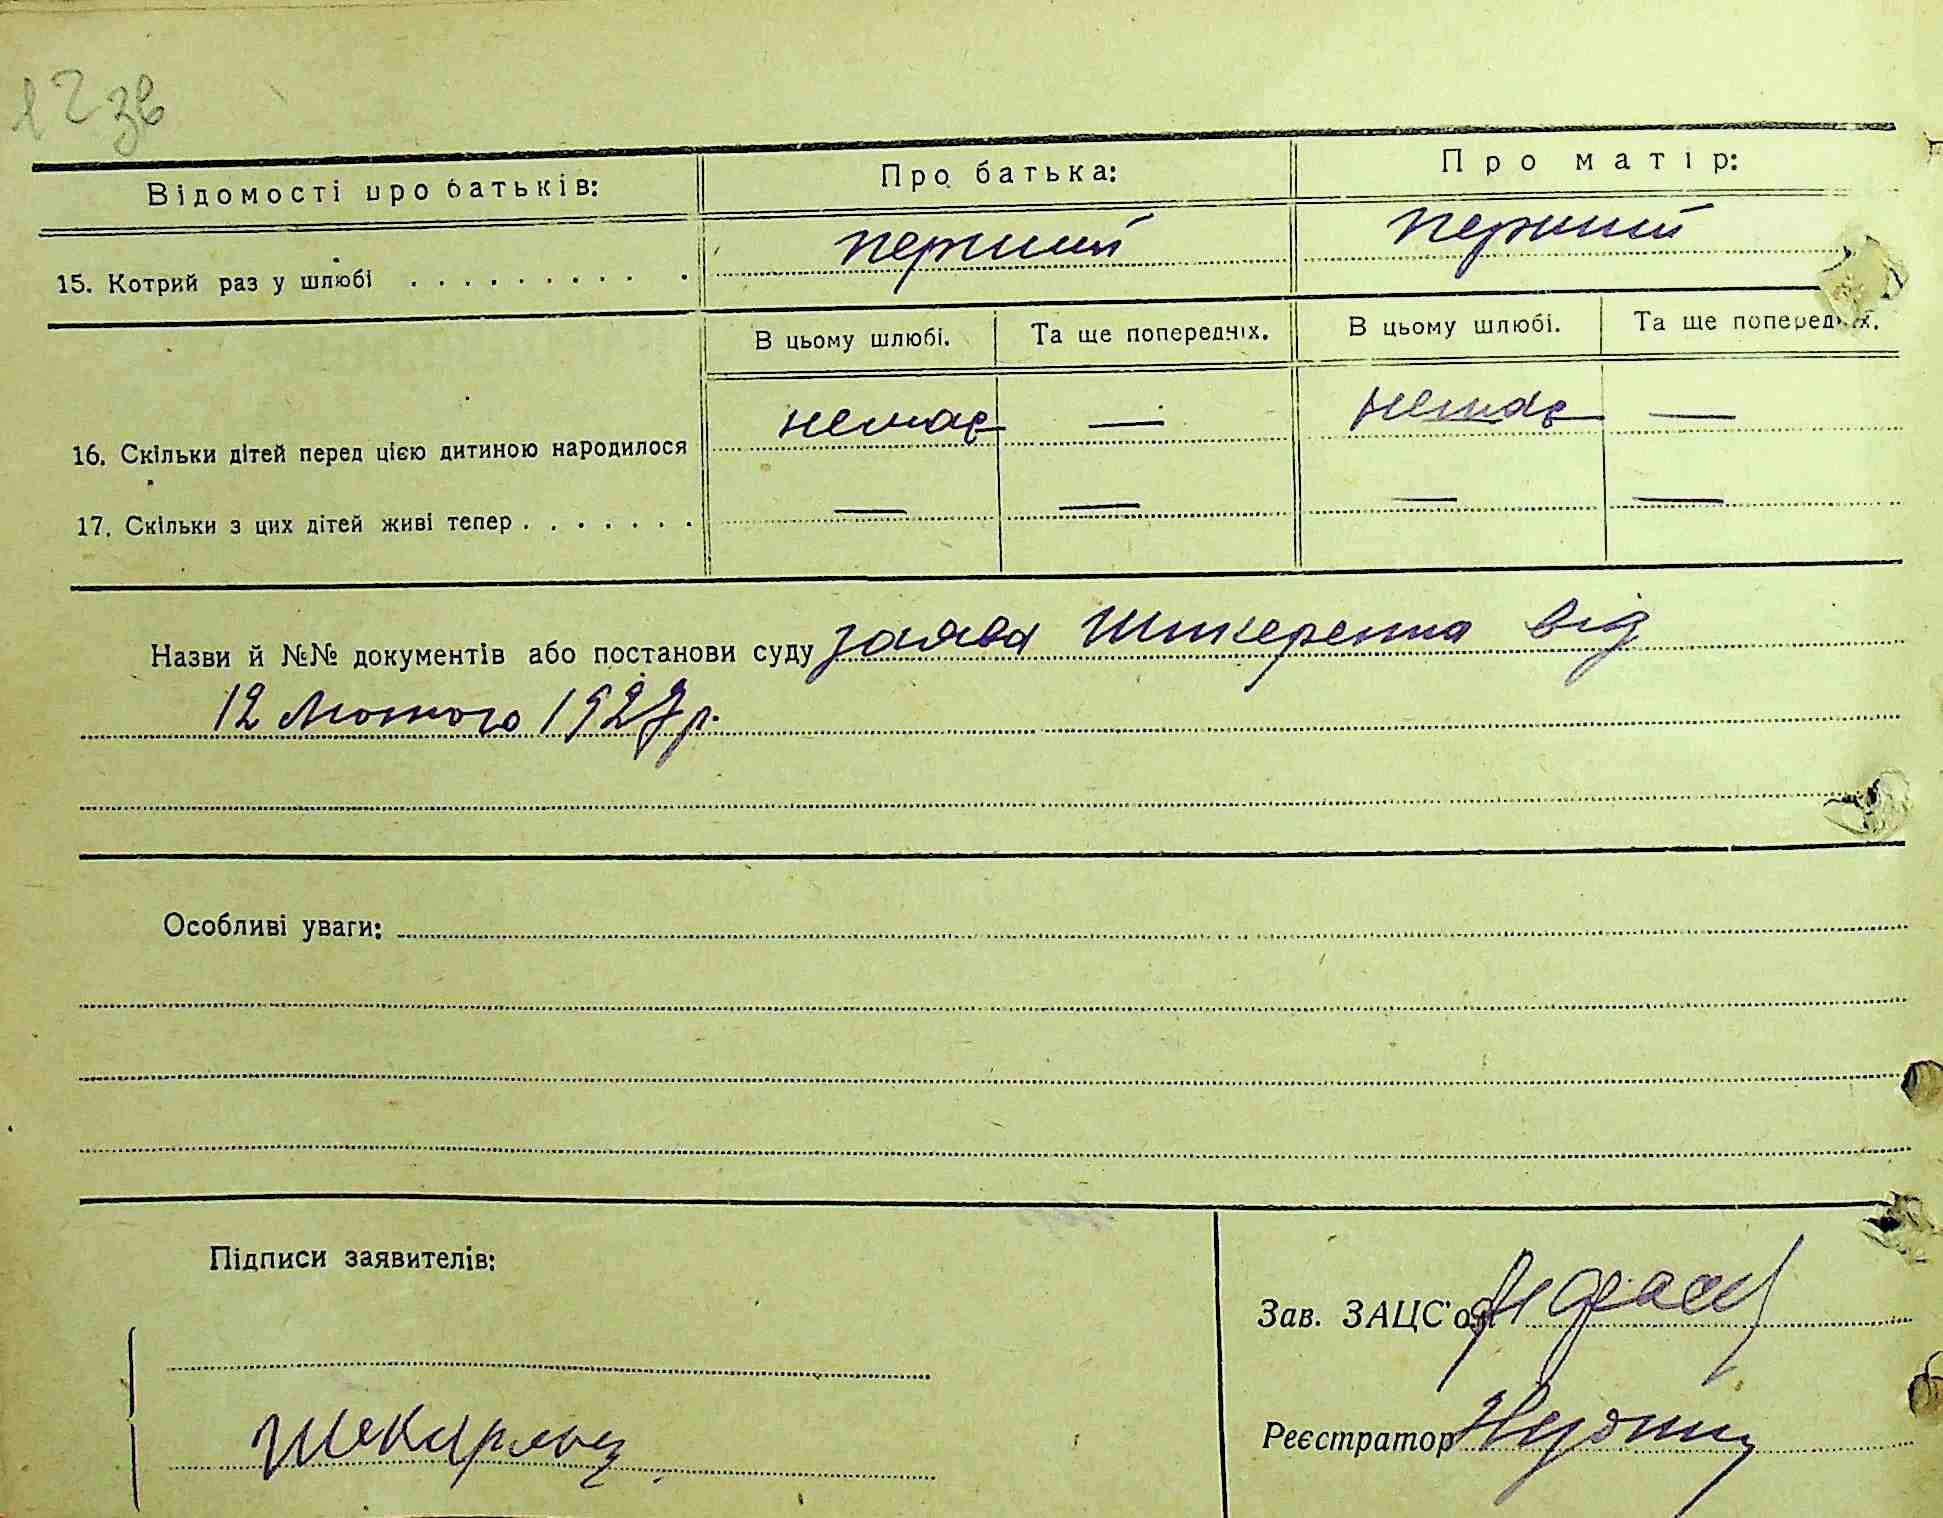 12 зв
Відомості про батьків: Про батька: Про матір:
15. Котрий раз у шлюбі . . . . . . . . . . перший перший
В цьому шлюбі. Та ще попередніх. В цьому шлюбі. Та ще попередніх.
16. Скільки дітей перед цією дитиною народилося немає — немає —
17. Скільки з цих дітей живі тепер . . . . . . . — — — —
Назви й №№ документів або постанови суду заява від
12 Лютого 1927 р.
Особливі уваги:
Підписи заявителів:
Зав. ЗАЦС'ом
Реєстратор